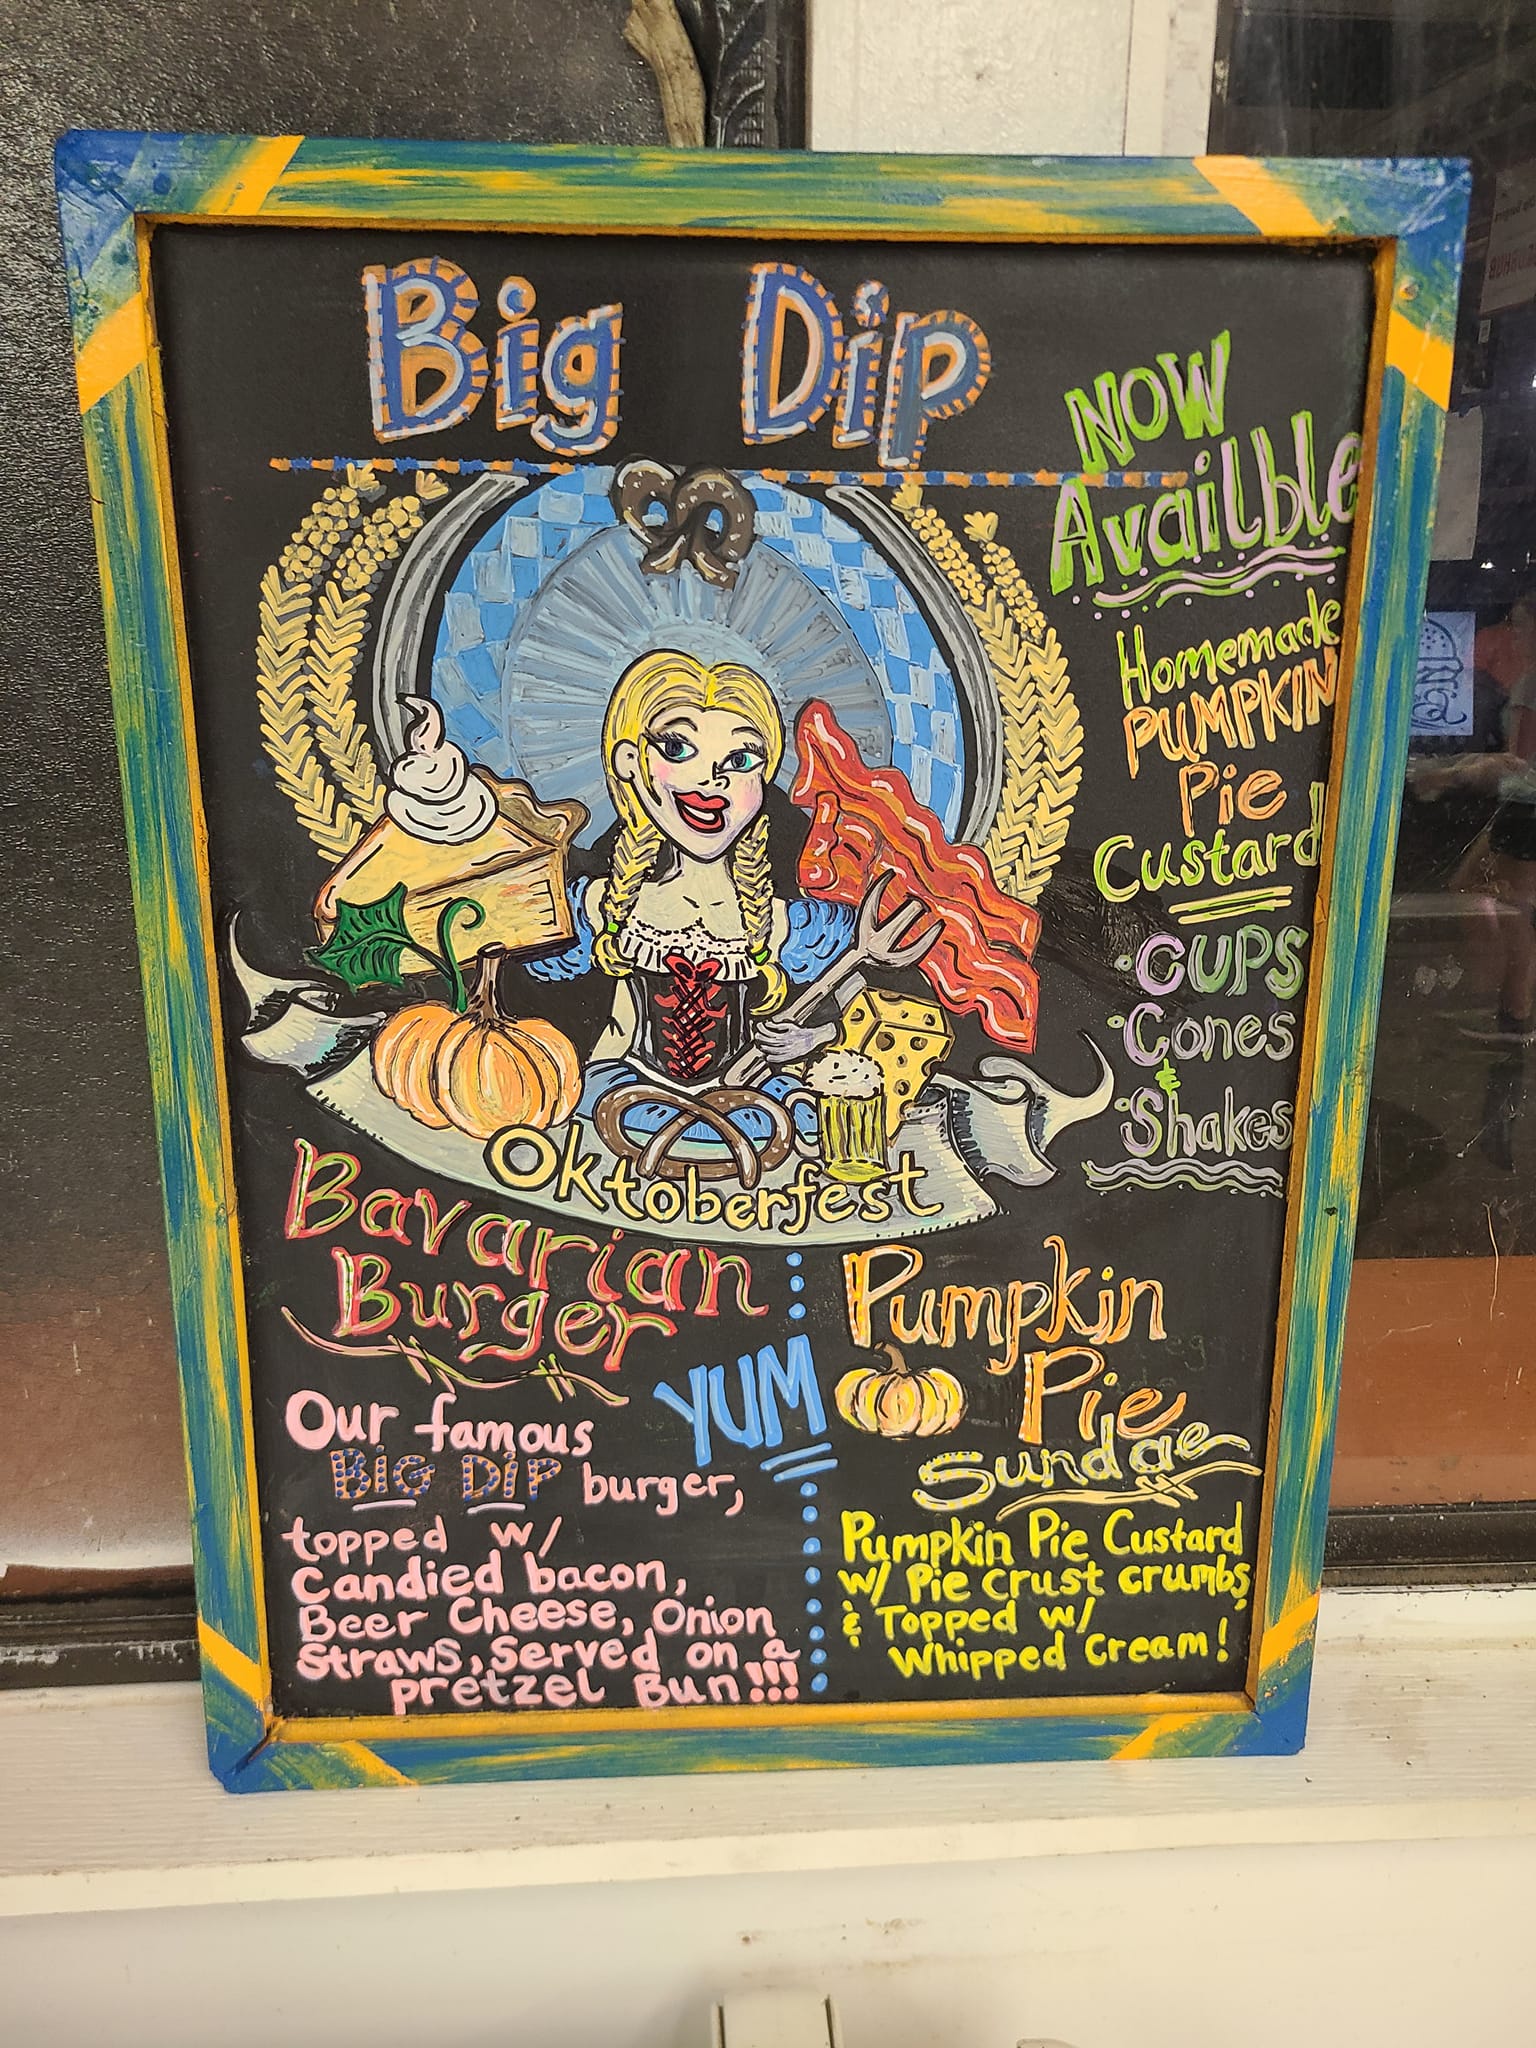 Big Dip
NOW
Availble
Homemade
PUMPKIN
Pie
Custard
• CUPS
• Cones
&
• Shakes
Oktoberfest
Bavarian
Burger
Our famous
BiG DiP burger,
topped w/
Candied bacon,
Beer Cheese, Onion
Straws, Served on a
pretzel Bun!!!
YUM
Pumpkin
Pie
Sundae
Pumpkin Pie Custard
w/ Pie crust crumbs
& Topped w/
Whipped cream!